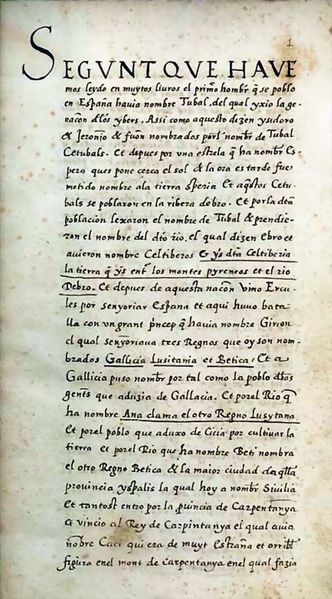 1
SEGVNT QVE HAVE
mos leydo en muytos liuros el primo hombre q̃ se poblo
en España hauia nombre Tubal, del qual yxio la ge
nacon dlõs ybers. Assi como aquesto dizen ysidoro
& Jeronjo & fuõn nombrados porl nombr̃ de Tubal
Cetubals. Et depues por vna estrela q̃ ha nombr̃ Es
pero ques pone cerca el sol & la ora es tarde fue
metido nombre ala tierra speria Et aq̃stos Cetu
bals se poblaron en la ribera debro. Et por la dt̃a
poblacion lexaron el nombre de Tubal & prendie
ron el nombre del dt̃o rio, el qual dizen ebro et
auieron nombre Celtiberos Et ys dt̃a Celtiberia
la tierra q̃ ys entr̃ los montes pyreneos et el rio
Debro. Et depues de aquesta nacon vino Ercu
les por senyoriar España et aqui huuo bata
lla con vn grant prĩncep q̃ hauia nombr̃ Girion
el qual senyoriaua tres Regnos que oy son nom
brados Gallicia Lusitania et Betica. Et a
Gallicia puso nombr̃ por tal como la poblo dlãs
gentes que aduzia de Gallacia. Et por el Rio q̃
ha nombre Ana clama el otro Regno Lusytana
Et por el poblo que aduxo de Cicia por cultiuar la
tierra et por el Rio que ha nombre Bet nombra
el otro Regno Betica & la maior ciudad da q̃lla
prouincia yspalis la qual hoy a nombr̃ Siuilia
Et tantost entro por la p̃uincia de Carpentanya
et vincio al Rey de Carpintanya el qual auia
nobre Caci qui era de muyt estraña et orribl̃
figura en el mont de carpentanya en el qual fazia